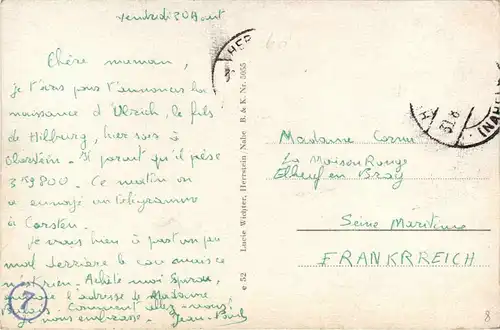 vendredi 30 Aout
Chère maman,
je t'écris pour t'annoncer la
naissance d'Ulrich, le fils
de Hilburg, hier soir à
Oberstein. Il parait qu'il pèse
3 K 9800. Ce matin on
a envoyé un télégramme
à Carsten.
Je vais bien à part un peu
mal derrière le cou mais ce
n'est rien. Achète moi Spirou,
l'adresse de Madame
Comment allez-vous?
Je vous embrasse. Jean-Paul
7
e 52 Lucie Wichter, Herrstein/Nahe B. & K. Nr. 5055
HER
31.8
(NAHE)
Madame Cornu
La Maison Rouge
Elbeuf en Bray
Seine Maritime
FRANKRREICH
8